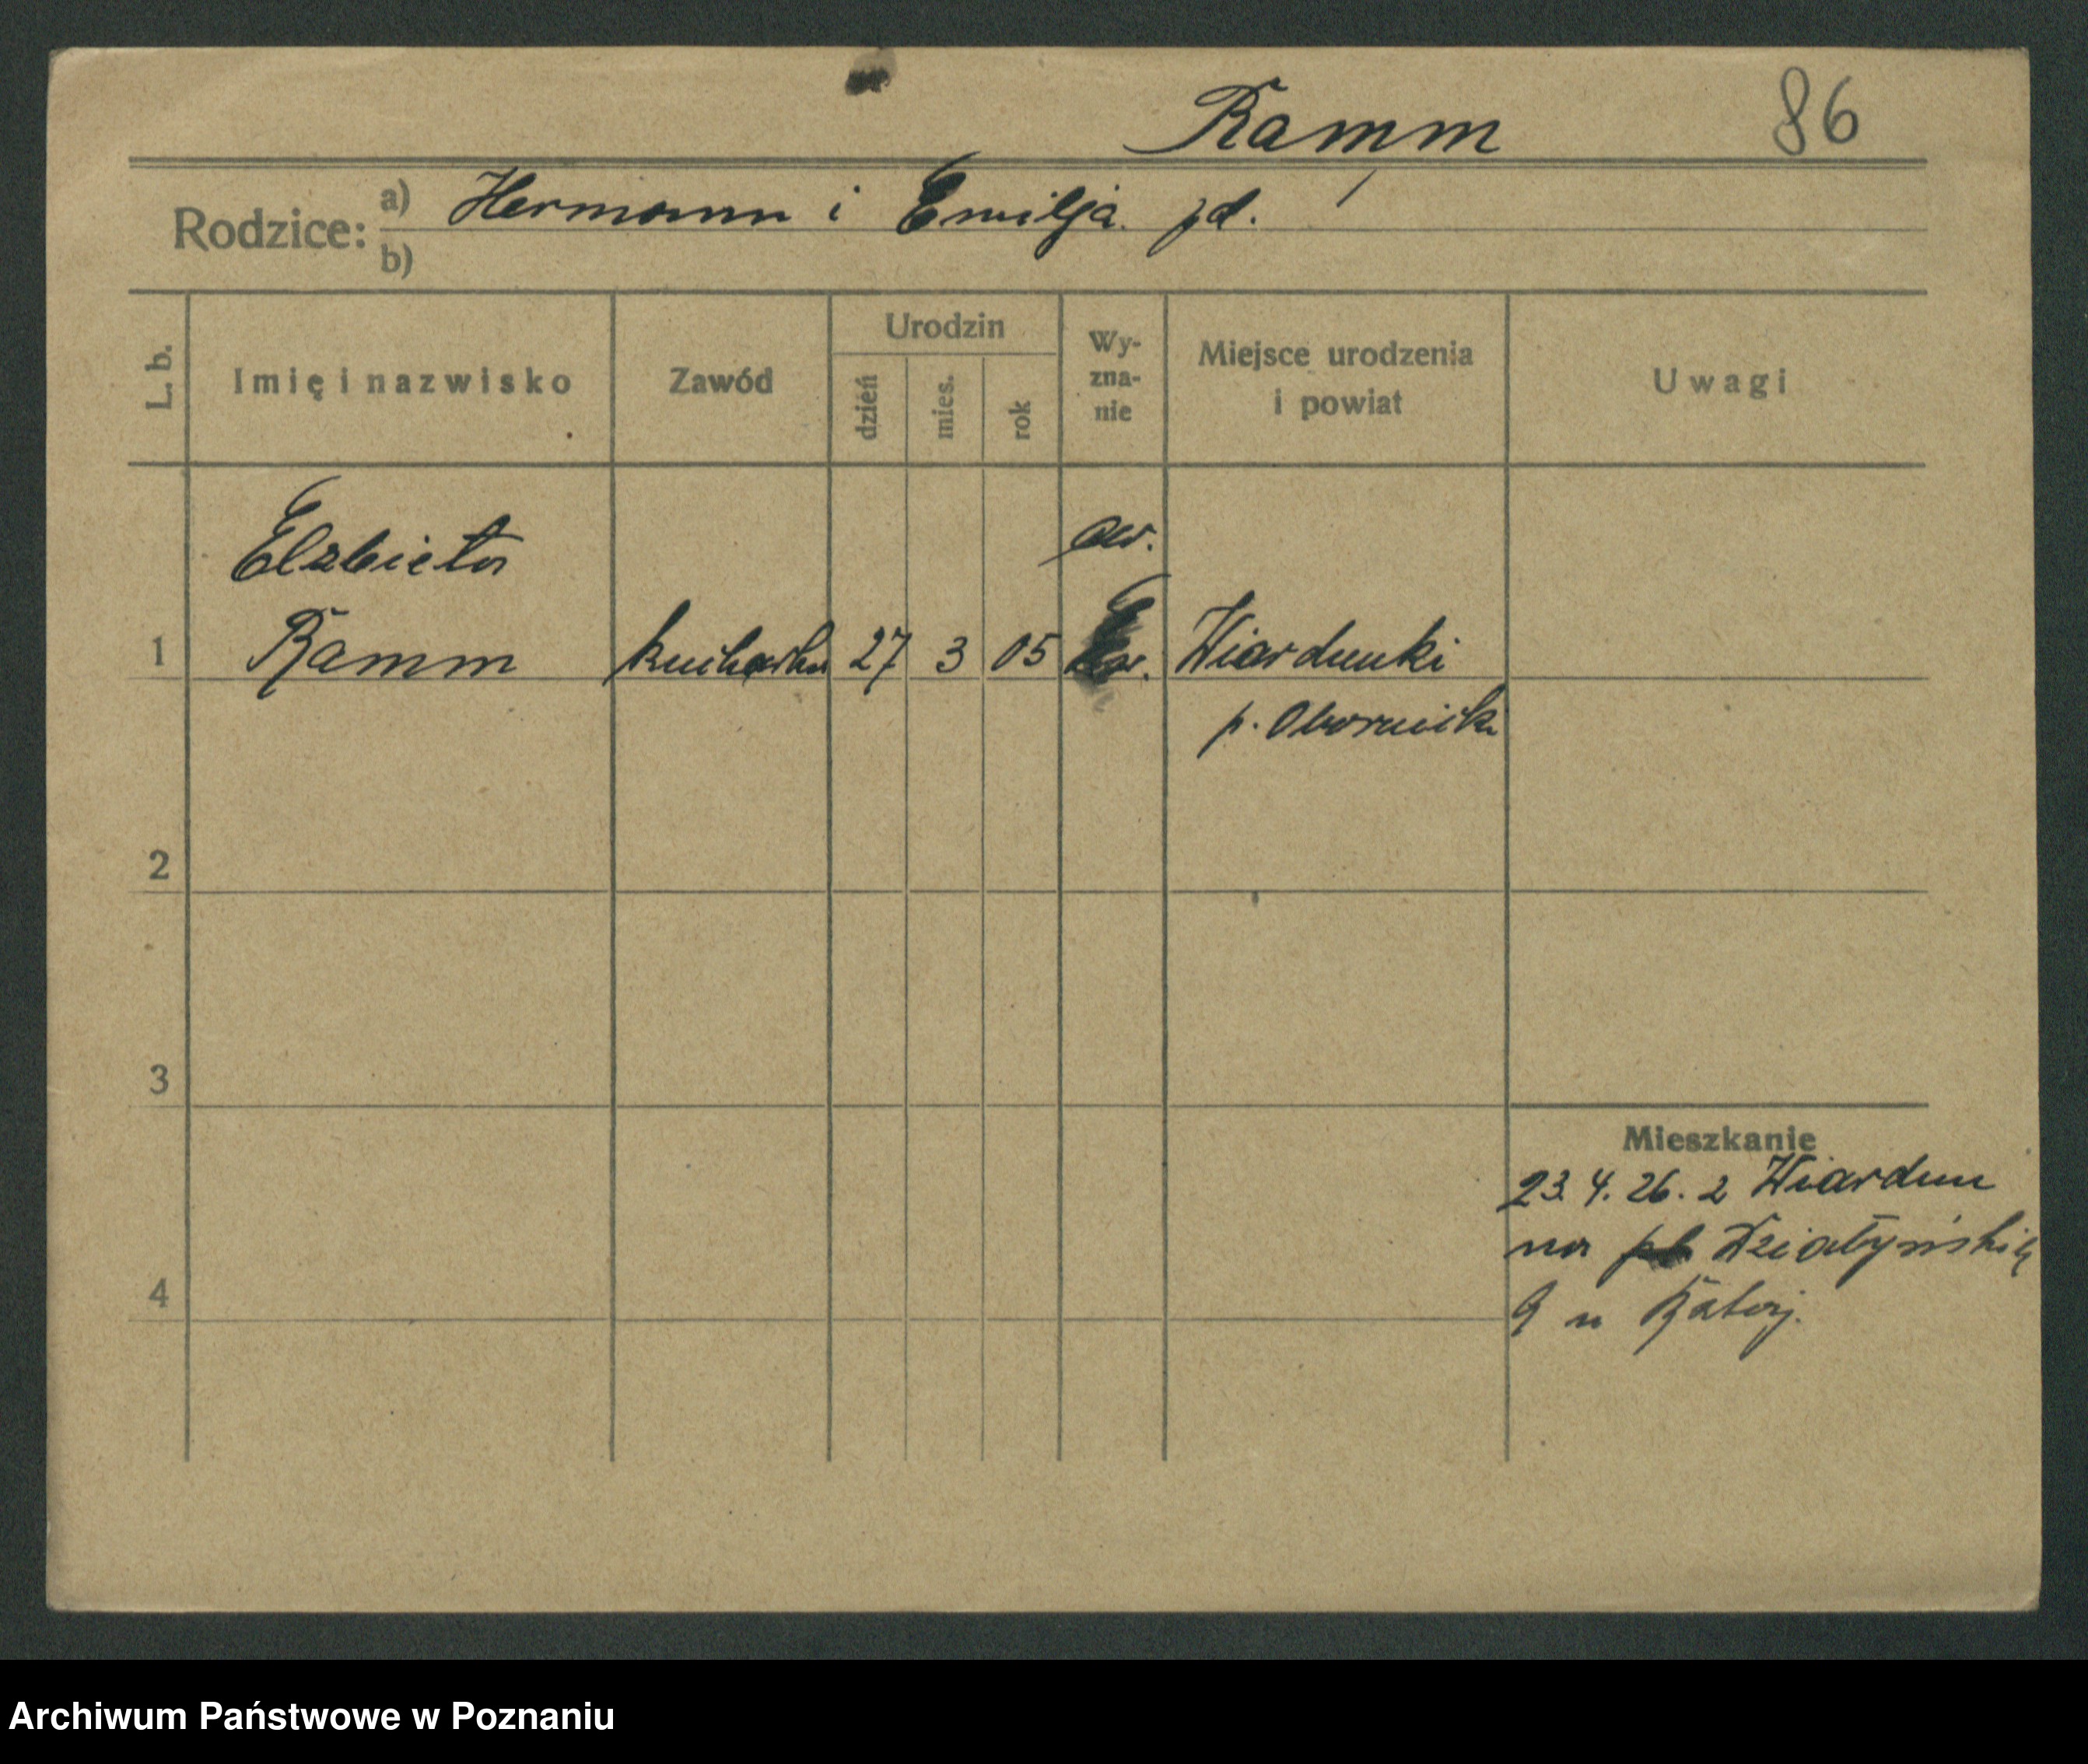 Ramm 86
Rodzice: a) Hermann i Emilja jd.
b)
L. b. Imię i nazwisko Zawód Urodzin dzień mies. rok Wy-zna-nie Miejsce urodzenia i powiat Uwagi
Elzbieta ew.
1 Ramm kucharka 27 3 05 Ew. Wiardunki
p. Oborniki
2
3
Mieszkanie
23. 4. 26. z Wiardun
na pl Działyńskich
4
9 u
Archiwum Państwowe w Poznaniu